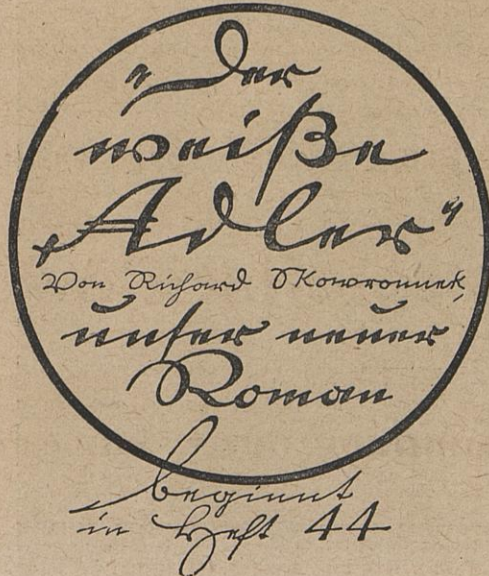 „Der
weiße
Adler“
Von Richard Skowronnek,
unser neuer
Roman
beginnt
in Heft 44